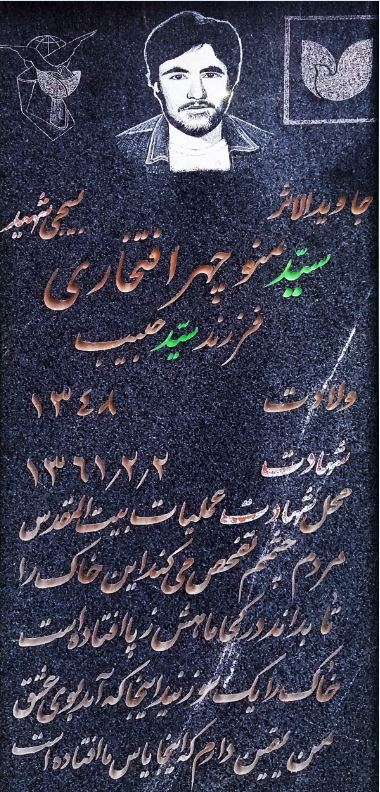 جاویدالاثر بسیجی شهید
سیّد منوچهر افتخاری
فرزند سیّد حبیب
ولادت ۱۳۴۸
شهادت ۱۳۶۱/۲/۲
محل شهادت عملیات بیت المقدس
مردم چشمم تفحص می کند این خاک را
تا بداند در کجا ماهش ز پا افتاده است
خاک را یک سو زنید اینجا که آمد بوی عشق
من یقین دارم که اینجا یاس ما افتاده است